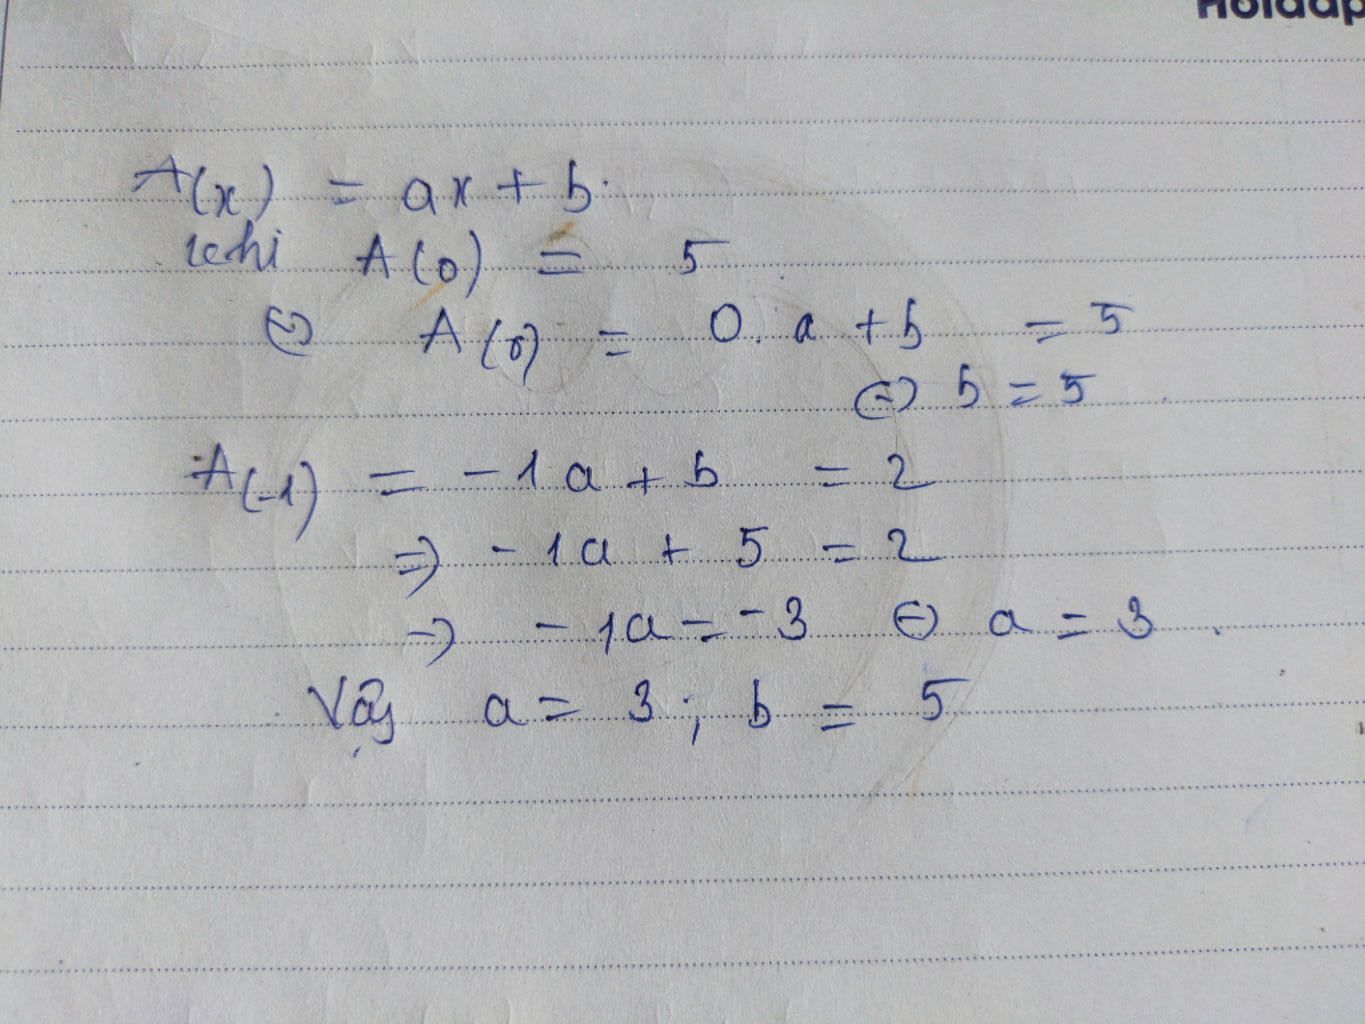 Hoidap
A(x) = ax + b.
khi A(0) = 5
⇔ A(0) = 0. a + b = 5
⇔ b = 5
A(-1) = -1a + b = 2
⇒ -1a + 5 = 2
⇒ -1a = -3 ⇔ a = 3.
Vậy a = 3; b = 5